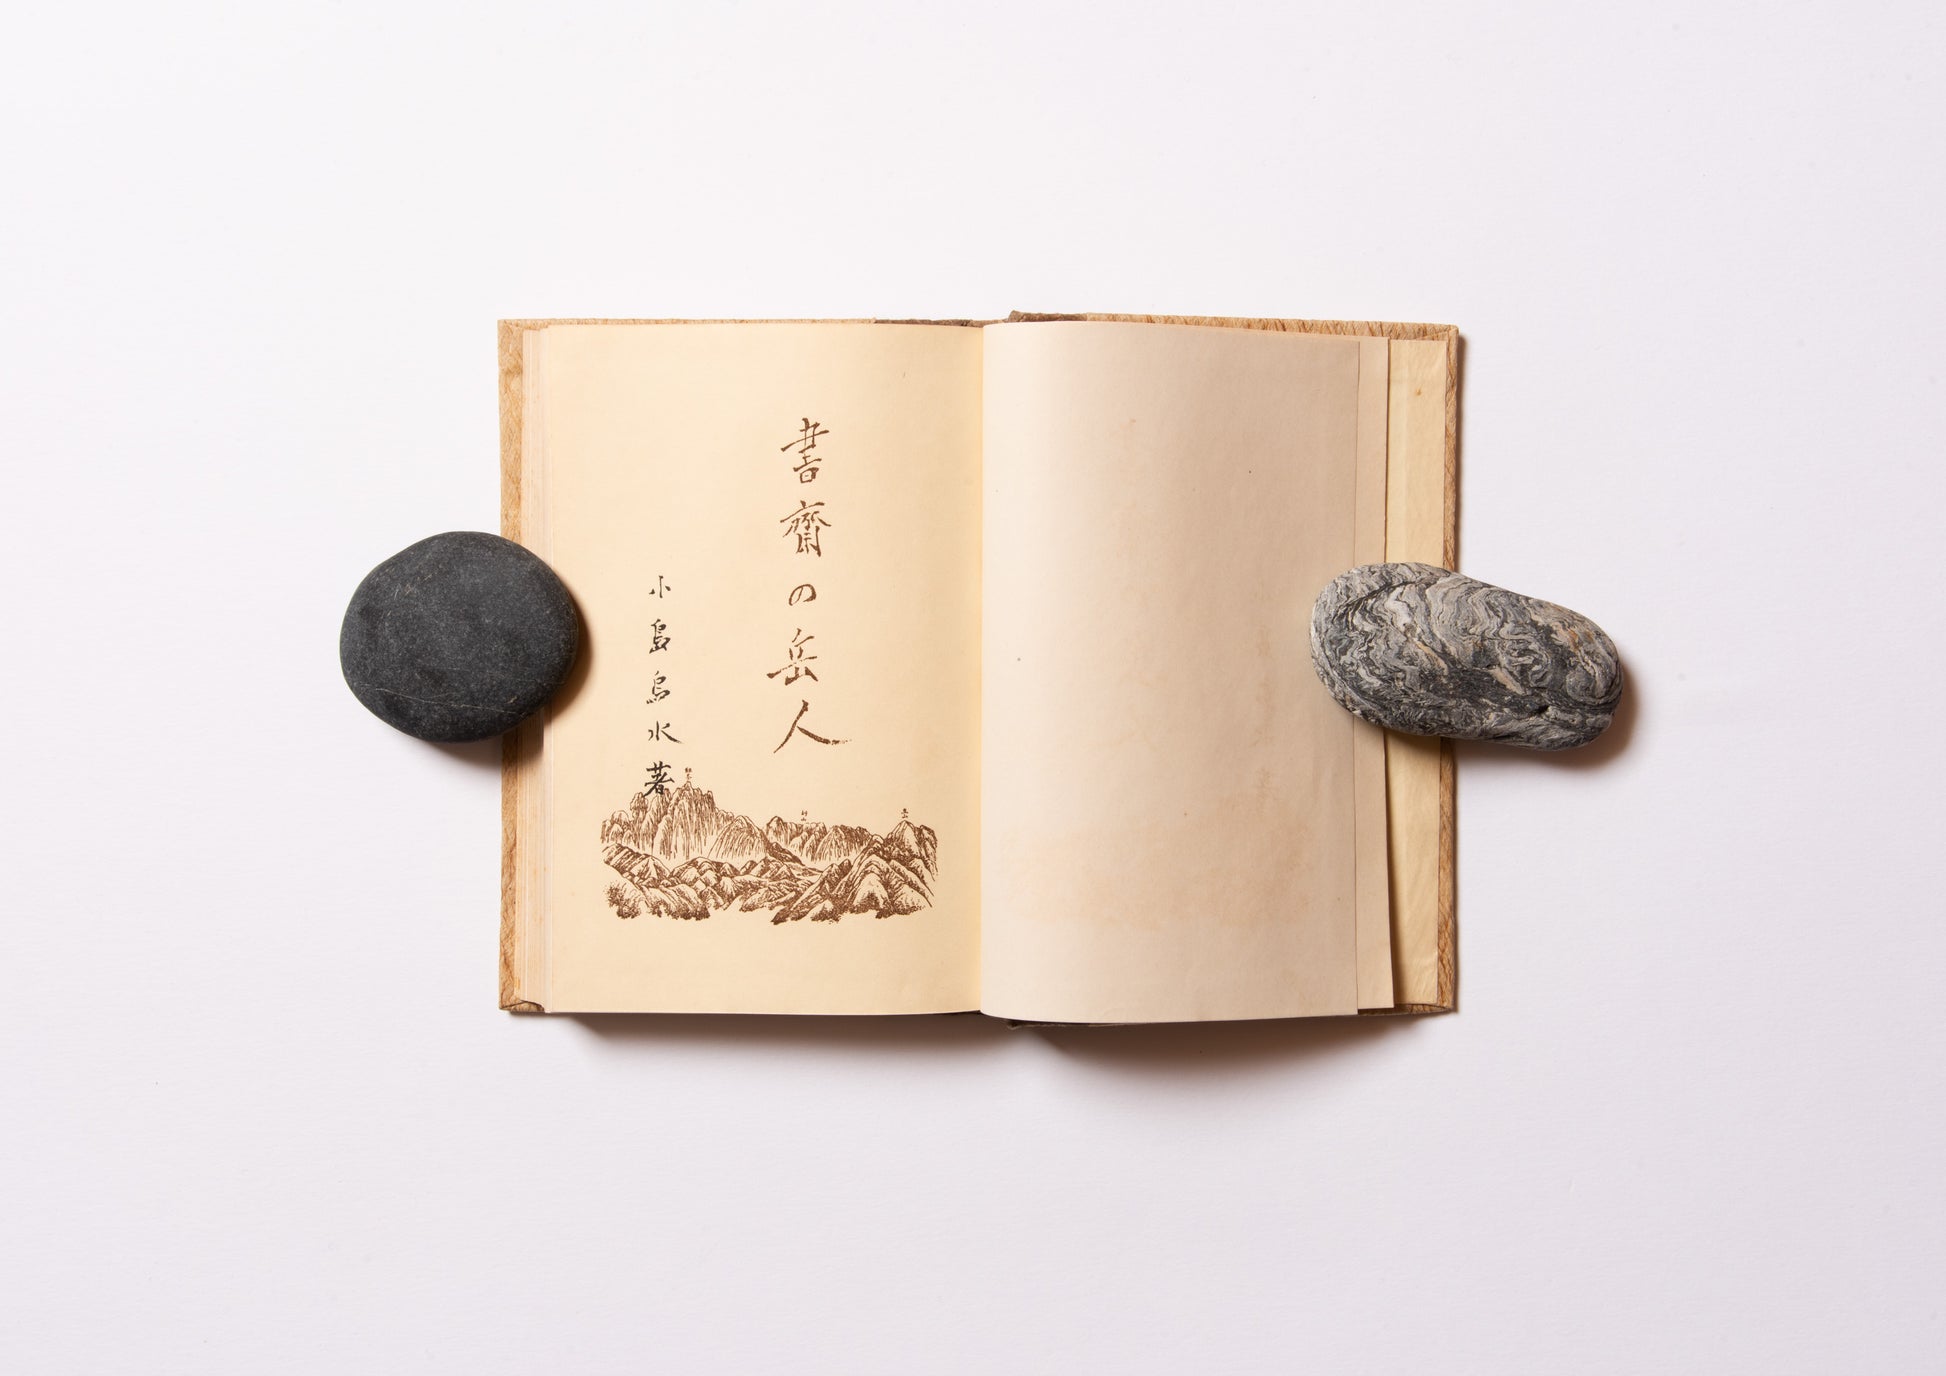 書齋の岳人
小島烏水著